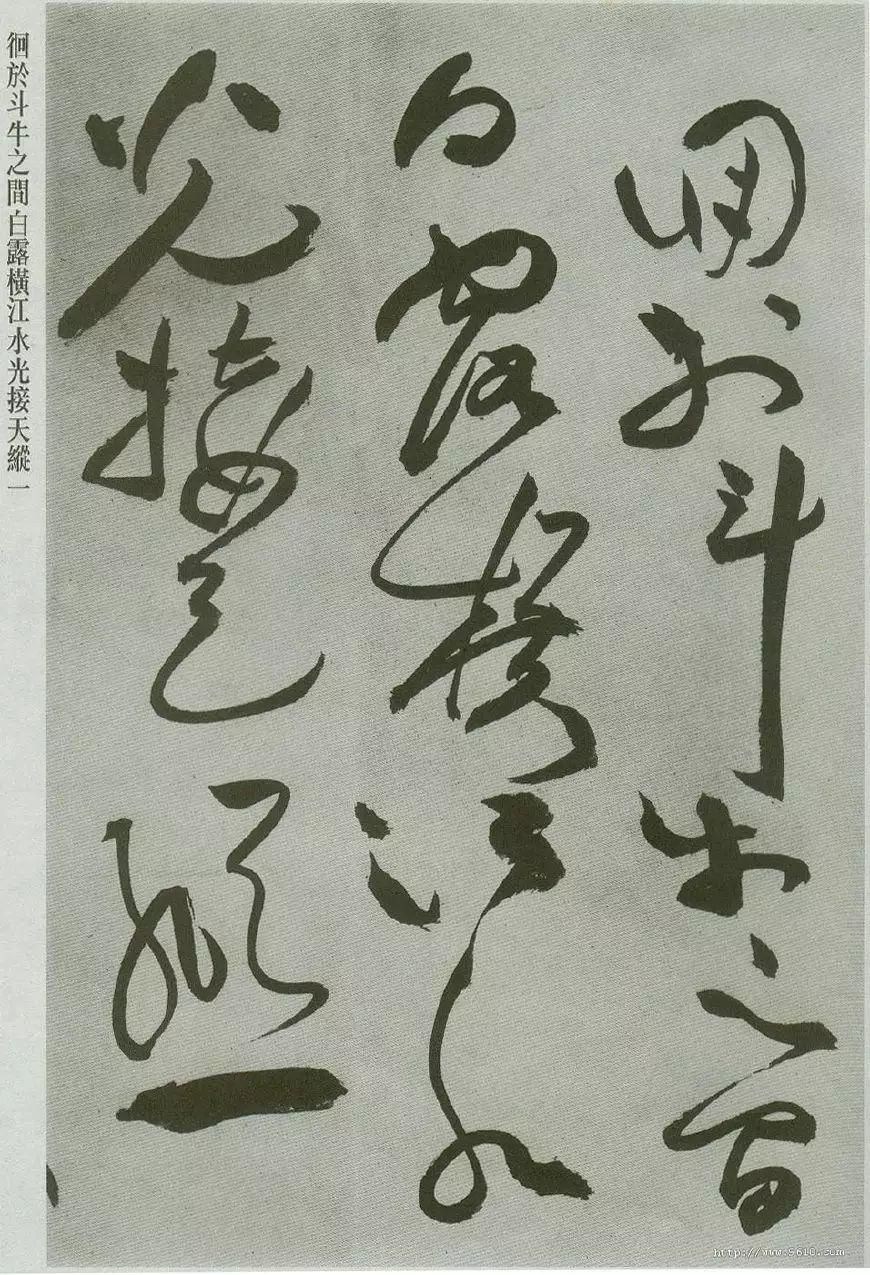 徊於斗牛之間
白露橫江水
光接天縱一
徊於斗牛之間白露橫江水光接天縱一
http://www.5610.com